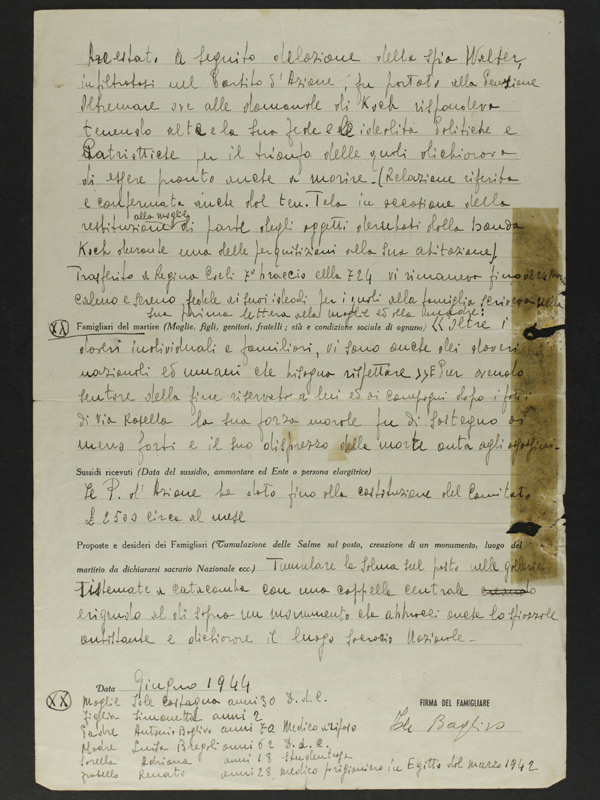 Arrestato a seguito delazione della spia Walter,
infiltratosi nel Partito d'Azione, fu portato alla Pensione
Oltremare ove alle domande di Koch rispondeva
tenendo alta e la sua fede e idealità Politiche e
Patriottiche per il trionfo delle quali dichiarava
di essere pronto anche a morire. (Relazione riferita
e confermata anche dal ten. Tela in occasione della
restituzione alla moglie di parte degli oggetti derubati dalla banda
Koch durante una delle perquisizioni alla sua abitazione)
Trasferito a Regina Coeli 7° braccio cella 724 vi rimaneva fino al 24
calmo e sereno, fedele ai suoi ideali per i quali alla famiglia scriveva nella
sua prima lettera alla moglie ed alla madre:
XX Famigliari del martire (Moglie, figli, genitori, fratelli ; età e condizione sociale di ognuno) << Oltre i
doveri individuali e familiari, vi sono anche dei doveri
nazionali ed umani che bisogna rispettare >> E Pur avendo
sentore della fine riservata a lui ed ai compagni dopo i fatti
di Via Rasella la sua forza morale fu di sostegno ai
meno forti e il suo disprezzo della morte onta agli
Sussidi ricevuti (Data del sussidio, ammontare ed Ente o persona elargitrice)
Il P. d'Azione ha dato fino alla costituzione del Comitato
£ 2500 circa al mese
Proposte e desideri dei Famigliari (Tumulazione delle Salme sul posto, creazione di un monumento, luogo del
martirio da dichiararsi sacrario Nazionale ecc.) Tumulare la Salma sul posto nelle gallerie
sistemate a catacomba con una cappella centrale
erigendo al di sopra un monumento che abbracci anche lo spiazzale
antistante e dichiarare il luogo Sacrario Nazionale -
Data Giugno 1944
FIRMA DEL FAMIGLIARE
XX Moglie Iole Castagna anni 30 D.d.C.
Figlia Simonetta anni 2
Padre Antonio Baglivo anni 70 Medico a riposo
Madre Luisa Bregoli anni 62 D.d.C.
Sorella Adriana anni 18 studentessa
fratello Renato anni 28 medico prigioniero in Egitto dal marzo 1942
Iole Baglivo